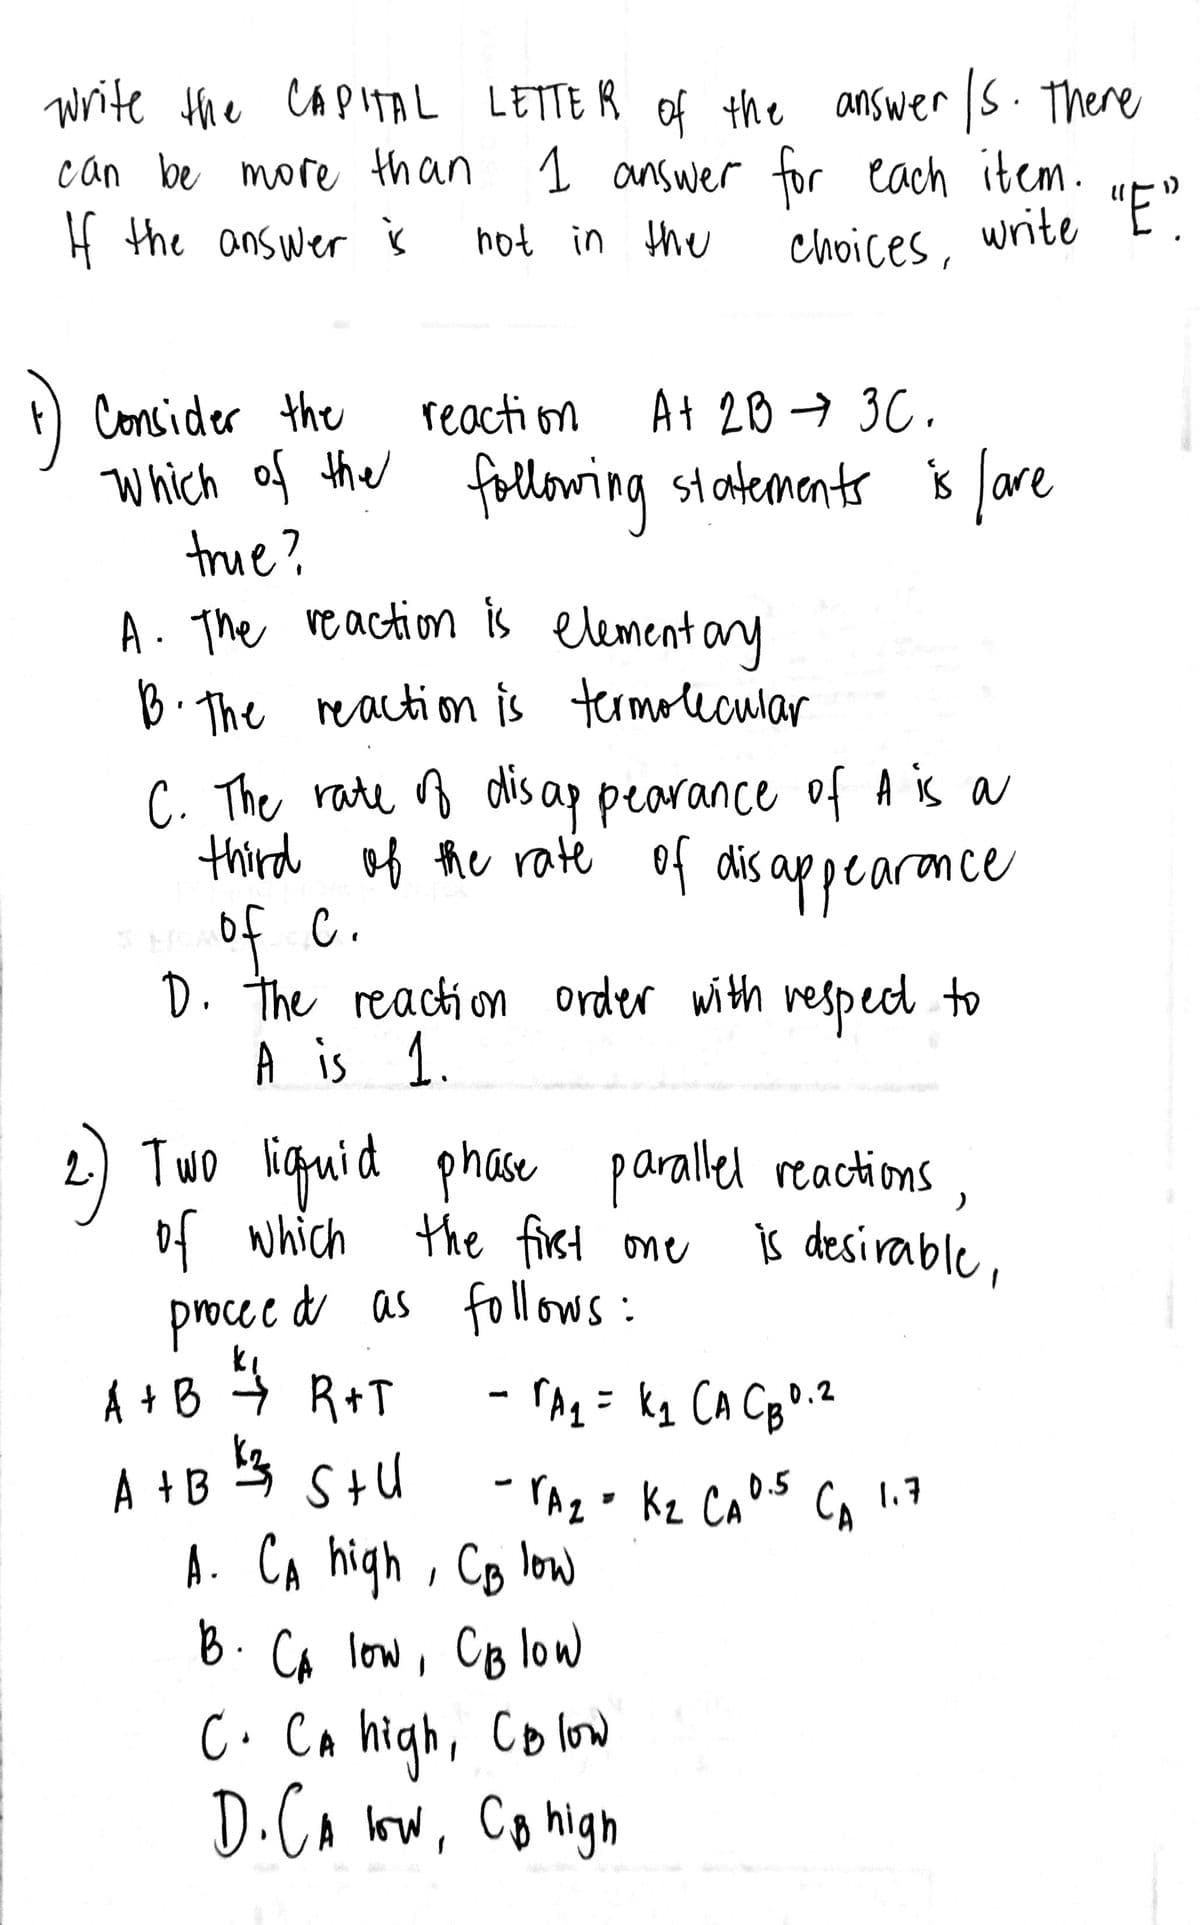 write the CAPITAL LETTER of the answer/s. There
can be more than 1 answer for each item.
If the answer is not in the choices, write "E".
1.) Consider the reaction A + 2B → 3C.
Which of the following statements is/are
true?
A. The reaction is elementary
B. The reaction is termolecular
C. The rate of disappearance of A is a
third of the rate of disappearance
of C.
D. The reaction order with respect to
A is 1.
2.) Two liquid phase parallel reactions,
of which the first one is desirable,
proceed as follows:
A + B k1→ R+T - rA1 = k1 CA CB^0.2
A + B k2→ S+U - rA2 = K2 CA^0.5 CA^1.7
A. CA high, CB low
B. CA low, CB low
C. CA high, CB low
D. CA low, CB high